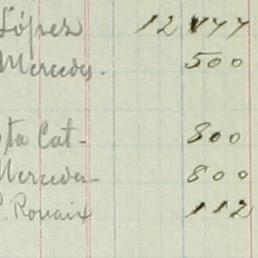 López 12
Mercedes. 500
ta Cat-
800
Mercedes- 800
P. Rouaix 112